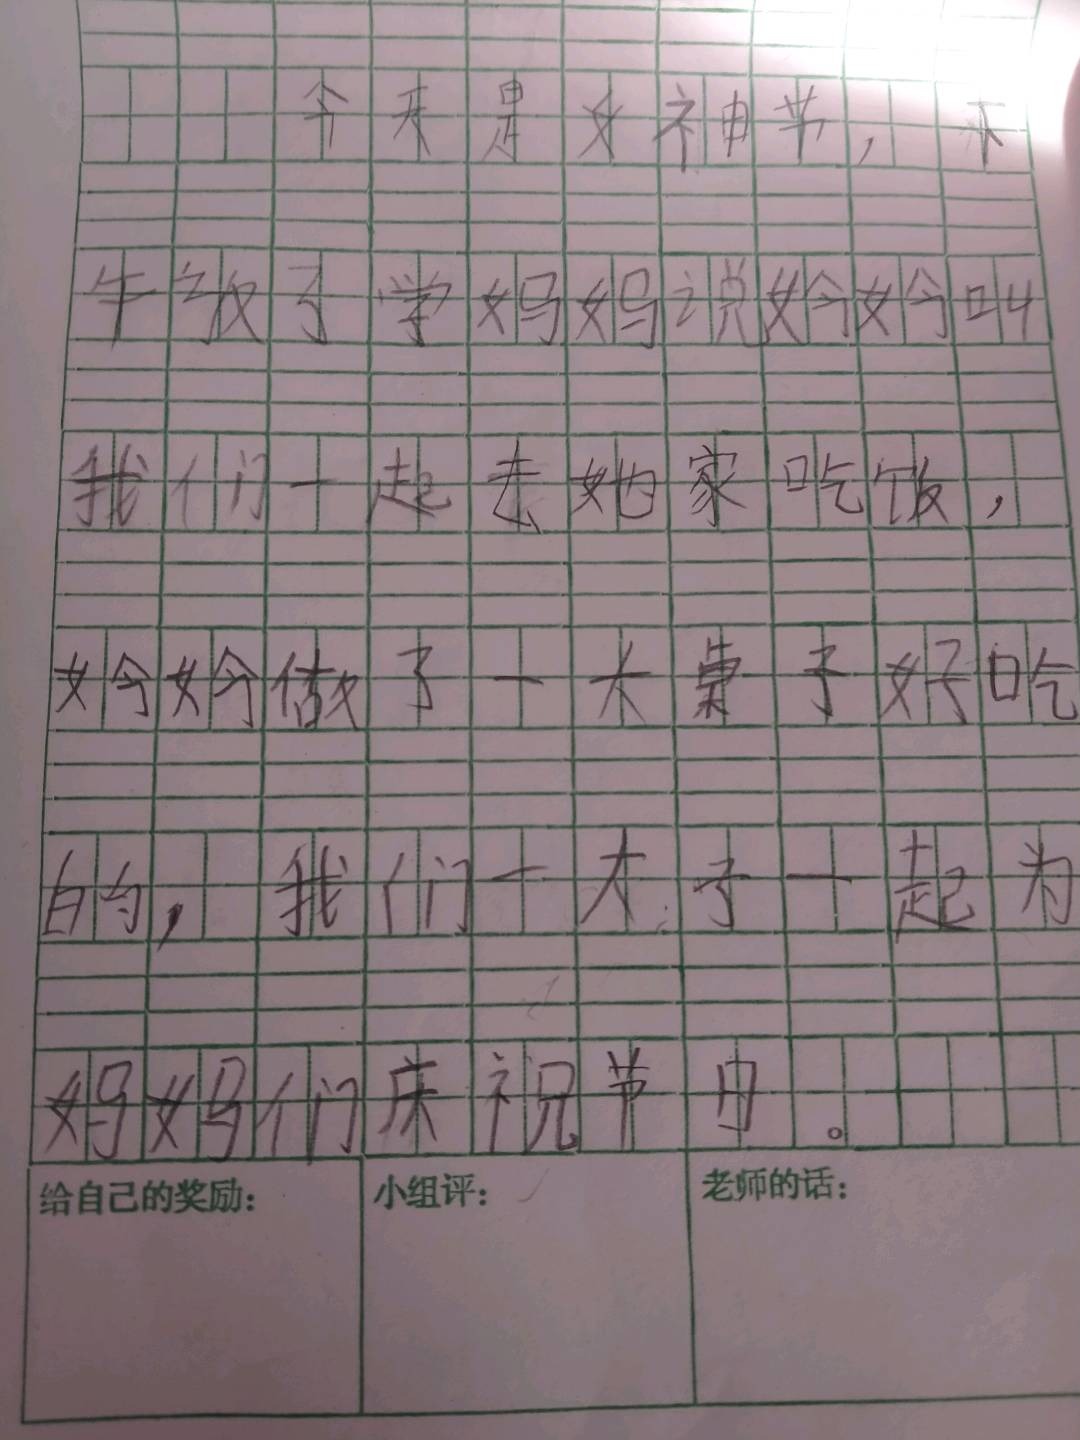 今天是女神节，下
午放了学妈妈说妗妗叫
我们一起去她家吃饭，
妗妗做了一大桌子好吃
的，我们一大子一起为
妈妈们庆祝节日。
给自己的奖励： 小组评： 老师的话：